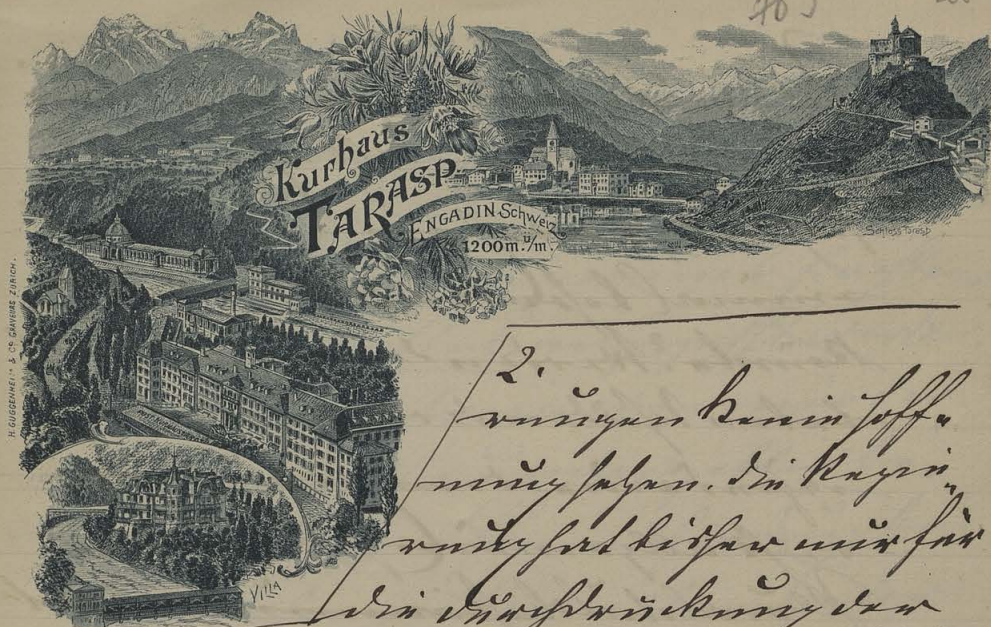 Kurhaus
TARASP
ENGADIN-Schweiz
1200 m. ü/m.
Schloss Tarasp
H. GUGGENHEIM & Co. GRAVEURS ZÜRICH.
VILLA
2.
rungen keine Hoff-
nung sehen. Die Regie-
rung hat bisher nur für
die Durchdrückung der